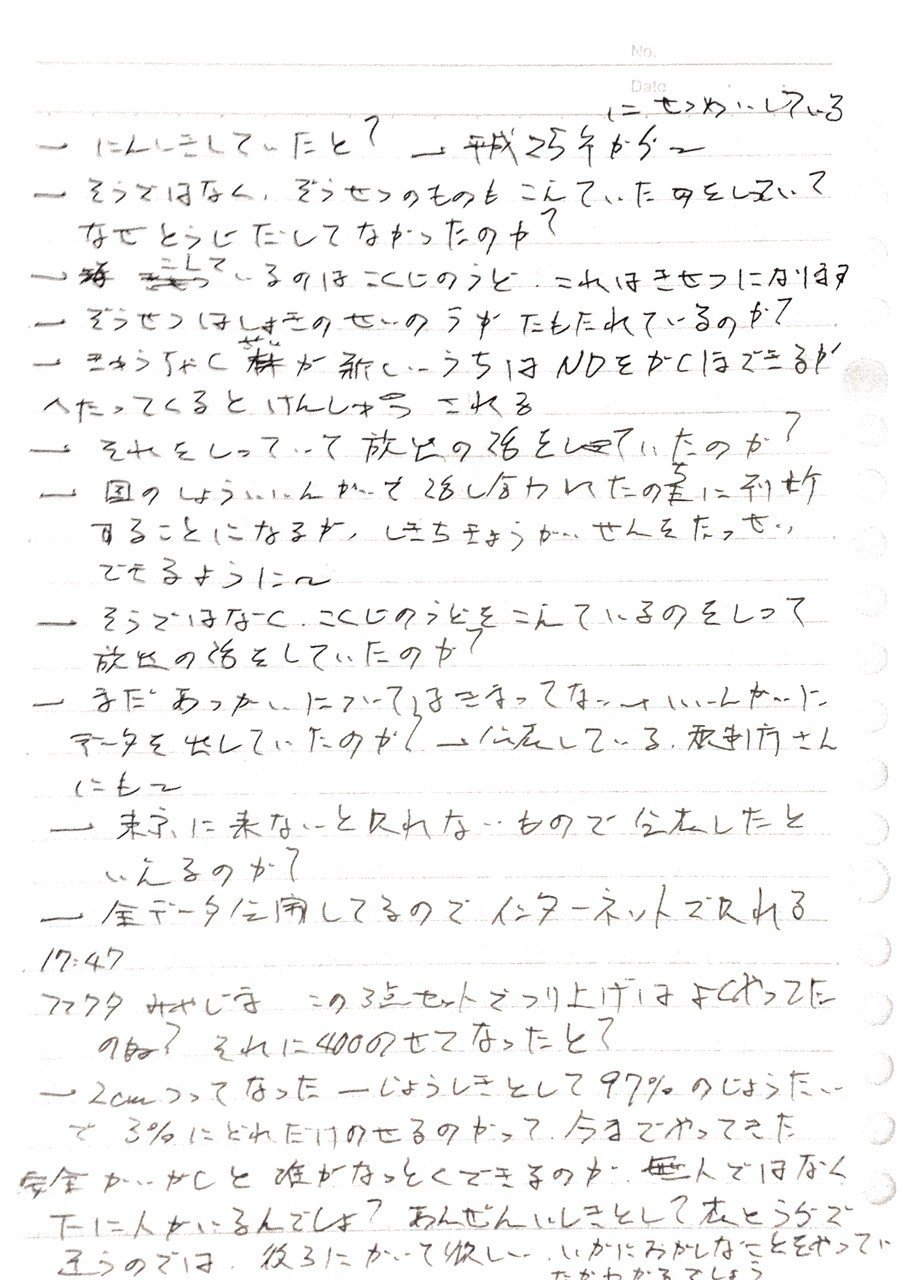 No.
Date
にせつめいしている
→ にんしきしていたと? → 平成25年から〜
→ そうではなく、ぞうせつのものもこえていたのをしっていて
なぜとうじだしてなかったのか?
→ こしているのはこくじのうど、これはきせつになります
→ ぞうせつはしょきのせいのうがたもたれているのか?
→ きゅうちゃくざいが新しいうちはNDをかくほできるが
へたってくるとけんしゅつされる
→ それをしっていて放出の話をしていたのか?
→ 国のしょういいんかいで話し合われたのちに判断
することになるが、しきちきょうかいせんをたっせい
できるように〜
→ そうではなく、こくじのうどをこえているのをしって
放出の話をしていたのか?
→ まだあつかいについてはきまってない→いいんかいに
データを出していたのか? → 公表している、規制庁さん
にも〜
→ 東京に来ないと見れないもので公表したと
いえるのか?
→ 全データ公開してるのでインターネットで見れる
17:47
ファクタ みやじま この3点セットでつり上げはよくやってた
のね? それに400のせてなったと?
→ 2cmつってなった→じょうしきとして97%のじょうたい
で3%にどれだけのせるのかって、今までやってきた
安全かいかくと誰がなっとくできるのか、無人ではなく
たに人がいるんでしょ? あんぜんいしきとして? 表とうらで
違うのでは、後ろにかいて欲しい、いかにおかしなことをやってい
たかわかるでしょう